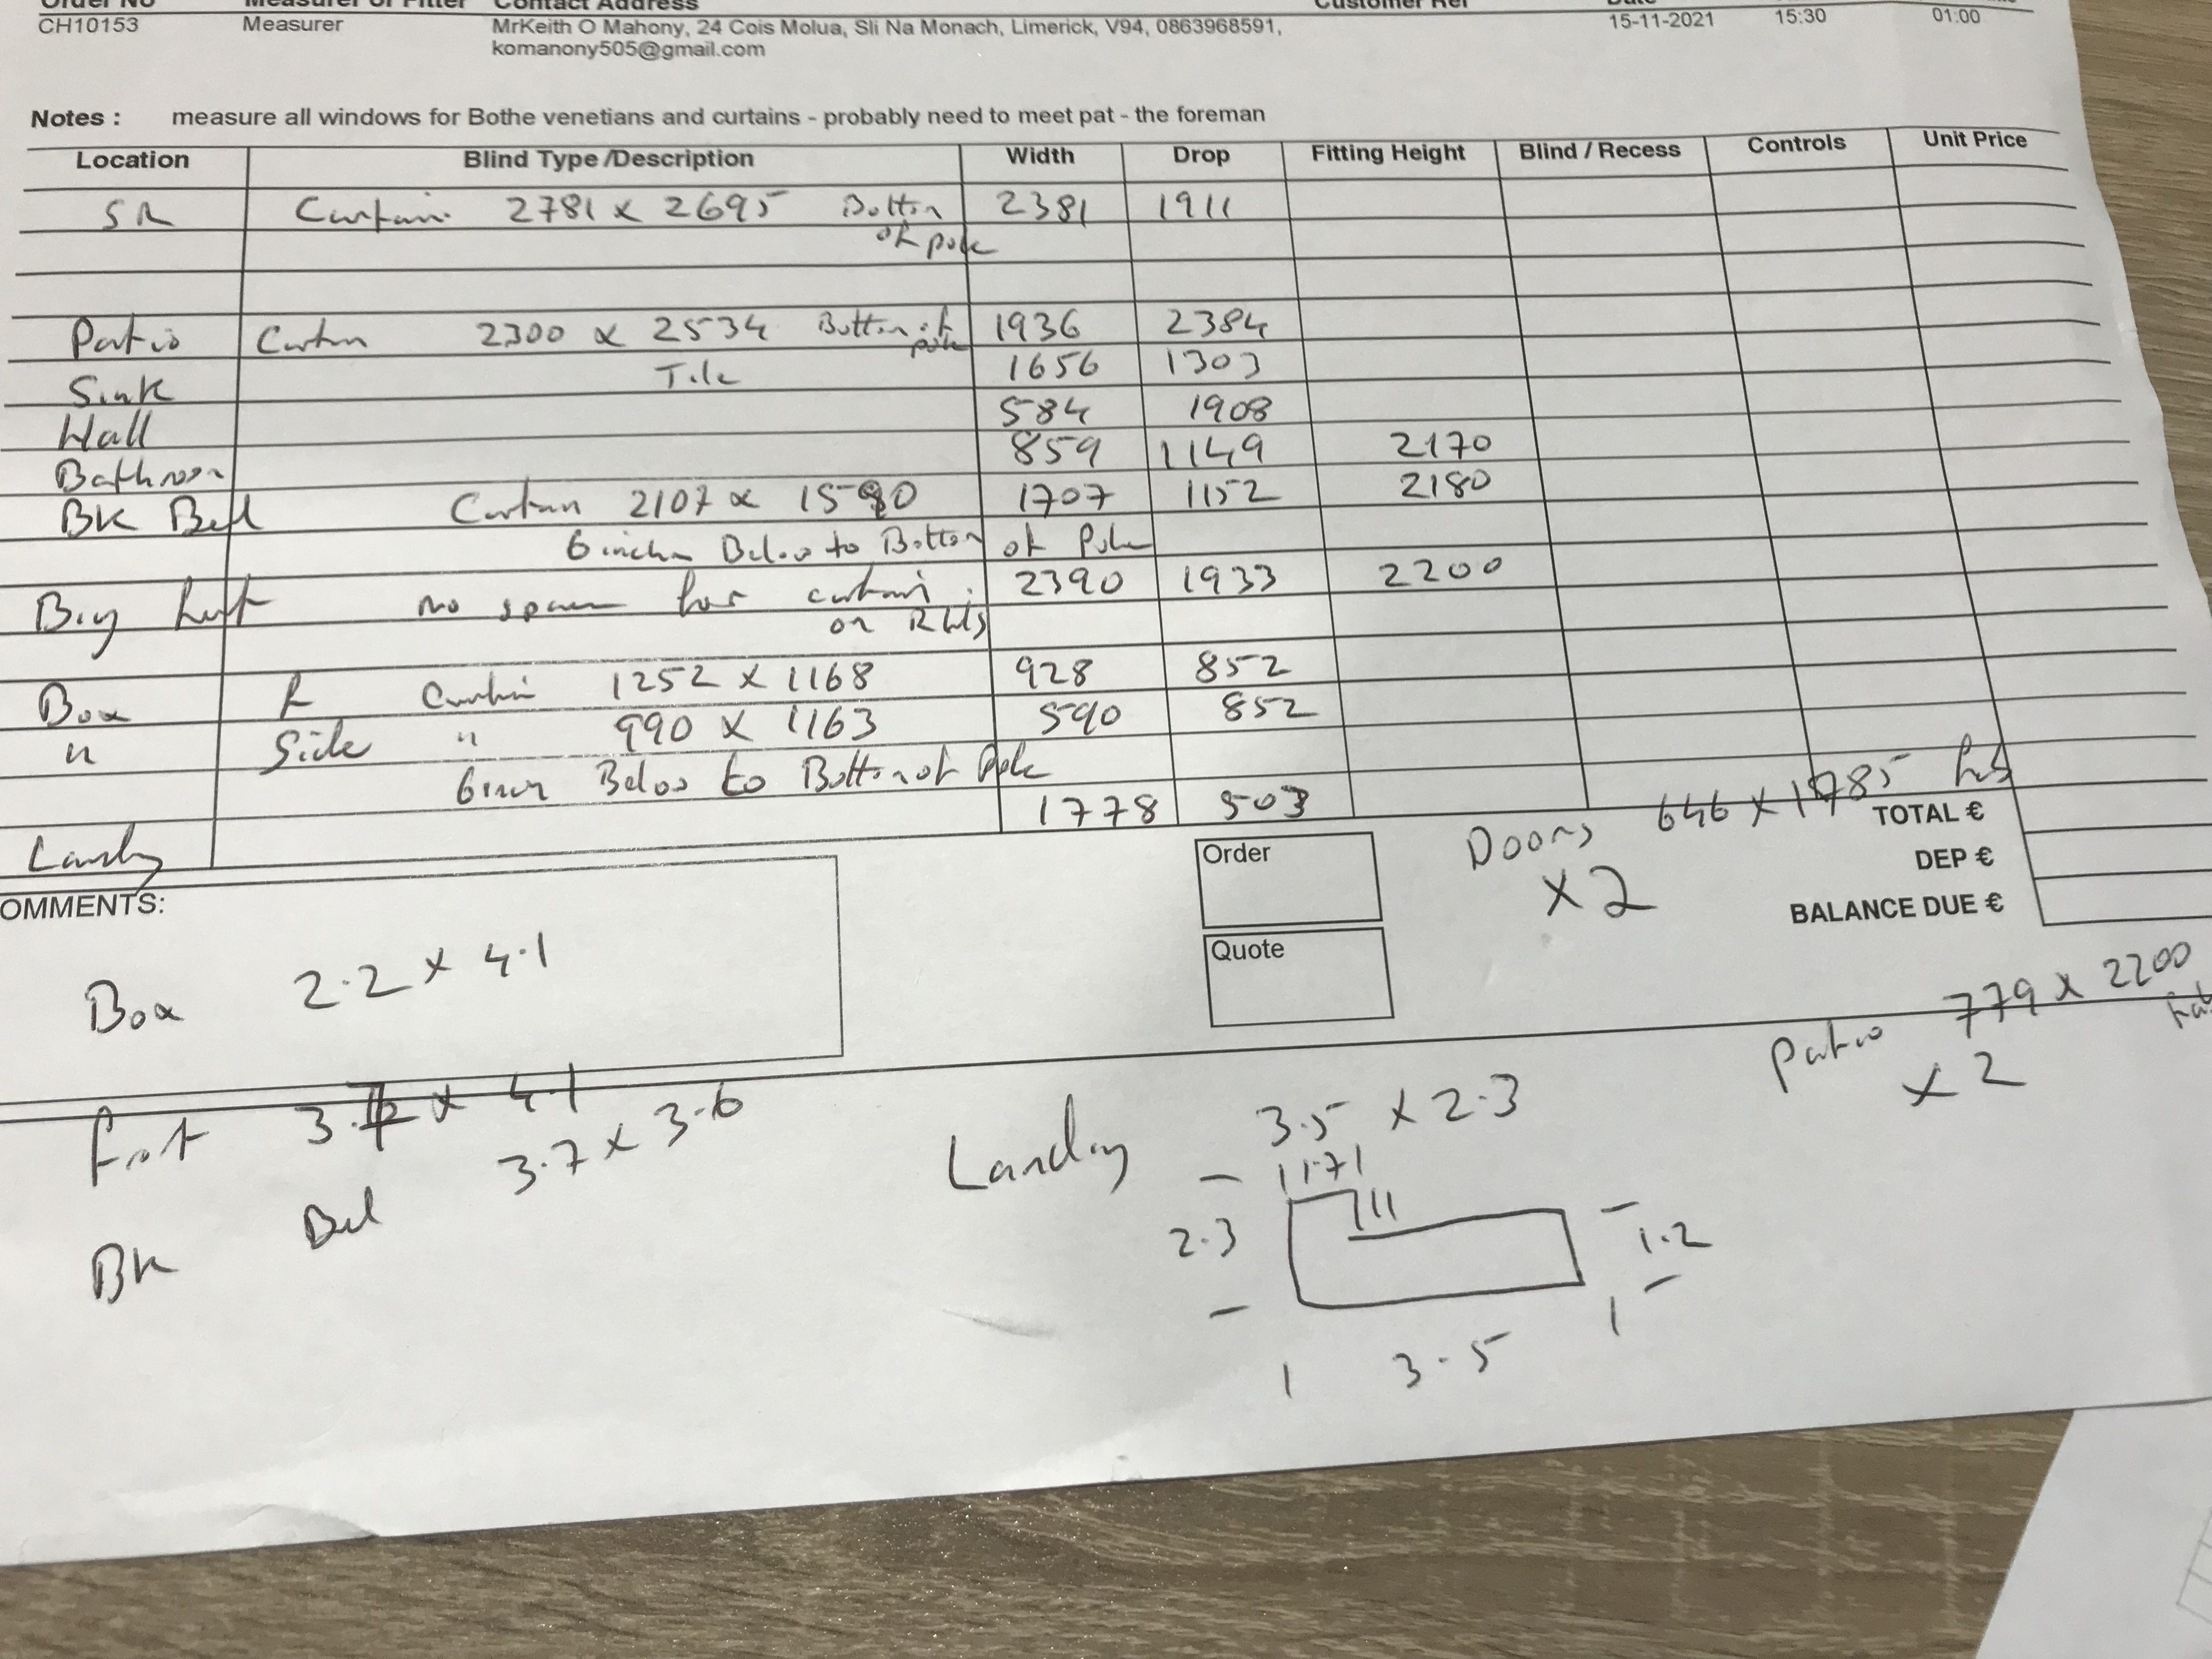 Order No Measurer or Fitter Contact Address Customer Ref Date
CH10153 Measurer MrKeith O Mahony, 24 Cois Molua, Sli Na Monach, Limerick, V94, 0863968591, 15-11-2021 15:30 01:00
komanony505@gmail.com
Notes : measure all windows for Bothe venetians and curtains - probably need to meet pat - the foreman
Location Blind Type /Description Width Drop Fitting Height Blind / Recess Controls Unit Price
SR Curtain 2781 x 2695 Bottom 2381 1911
of pole
Patio Curtain 2300 x 2534 Bottom of 1936 2384
pole
Sink Tile 1656 1303
Hall 584 1908
Bathroom 859 1149 2170
BK Bed Curtain 2107 x 1590 1707 1152 2180
6 inches Below to Bottom of Pole
Big no space for curtain 2390 1933 2200
on
Box Curtain 1252 x 1168 928 852
" Side " 990 x 1163 590 852
Below to Bottom of Pole
Landing 1778 503
Doors 646 x 1985
x 2
TOTAL €
DEP €
BALANCE DUE €
Order
Quote
OMMENTS:
Box 2.2 x 4.1
Patio 779 x 2200
x 2
Front 4.1
BK Bed 3.7 x 3.6
Landing 3.5 x 2.3
1.71
2.3
1.2
3.5